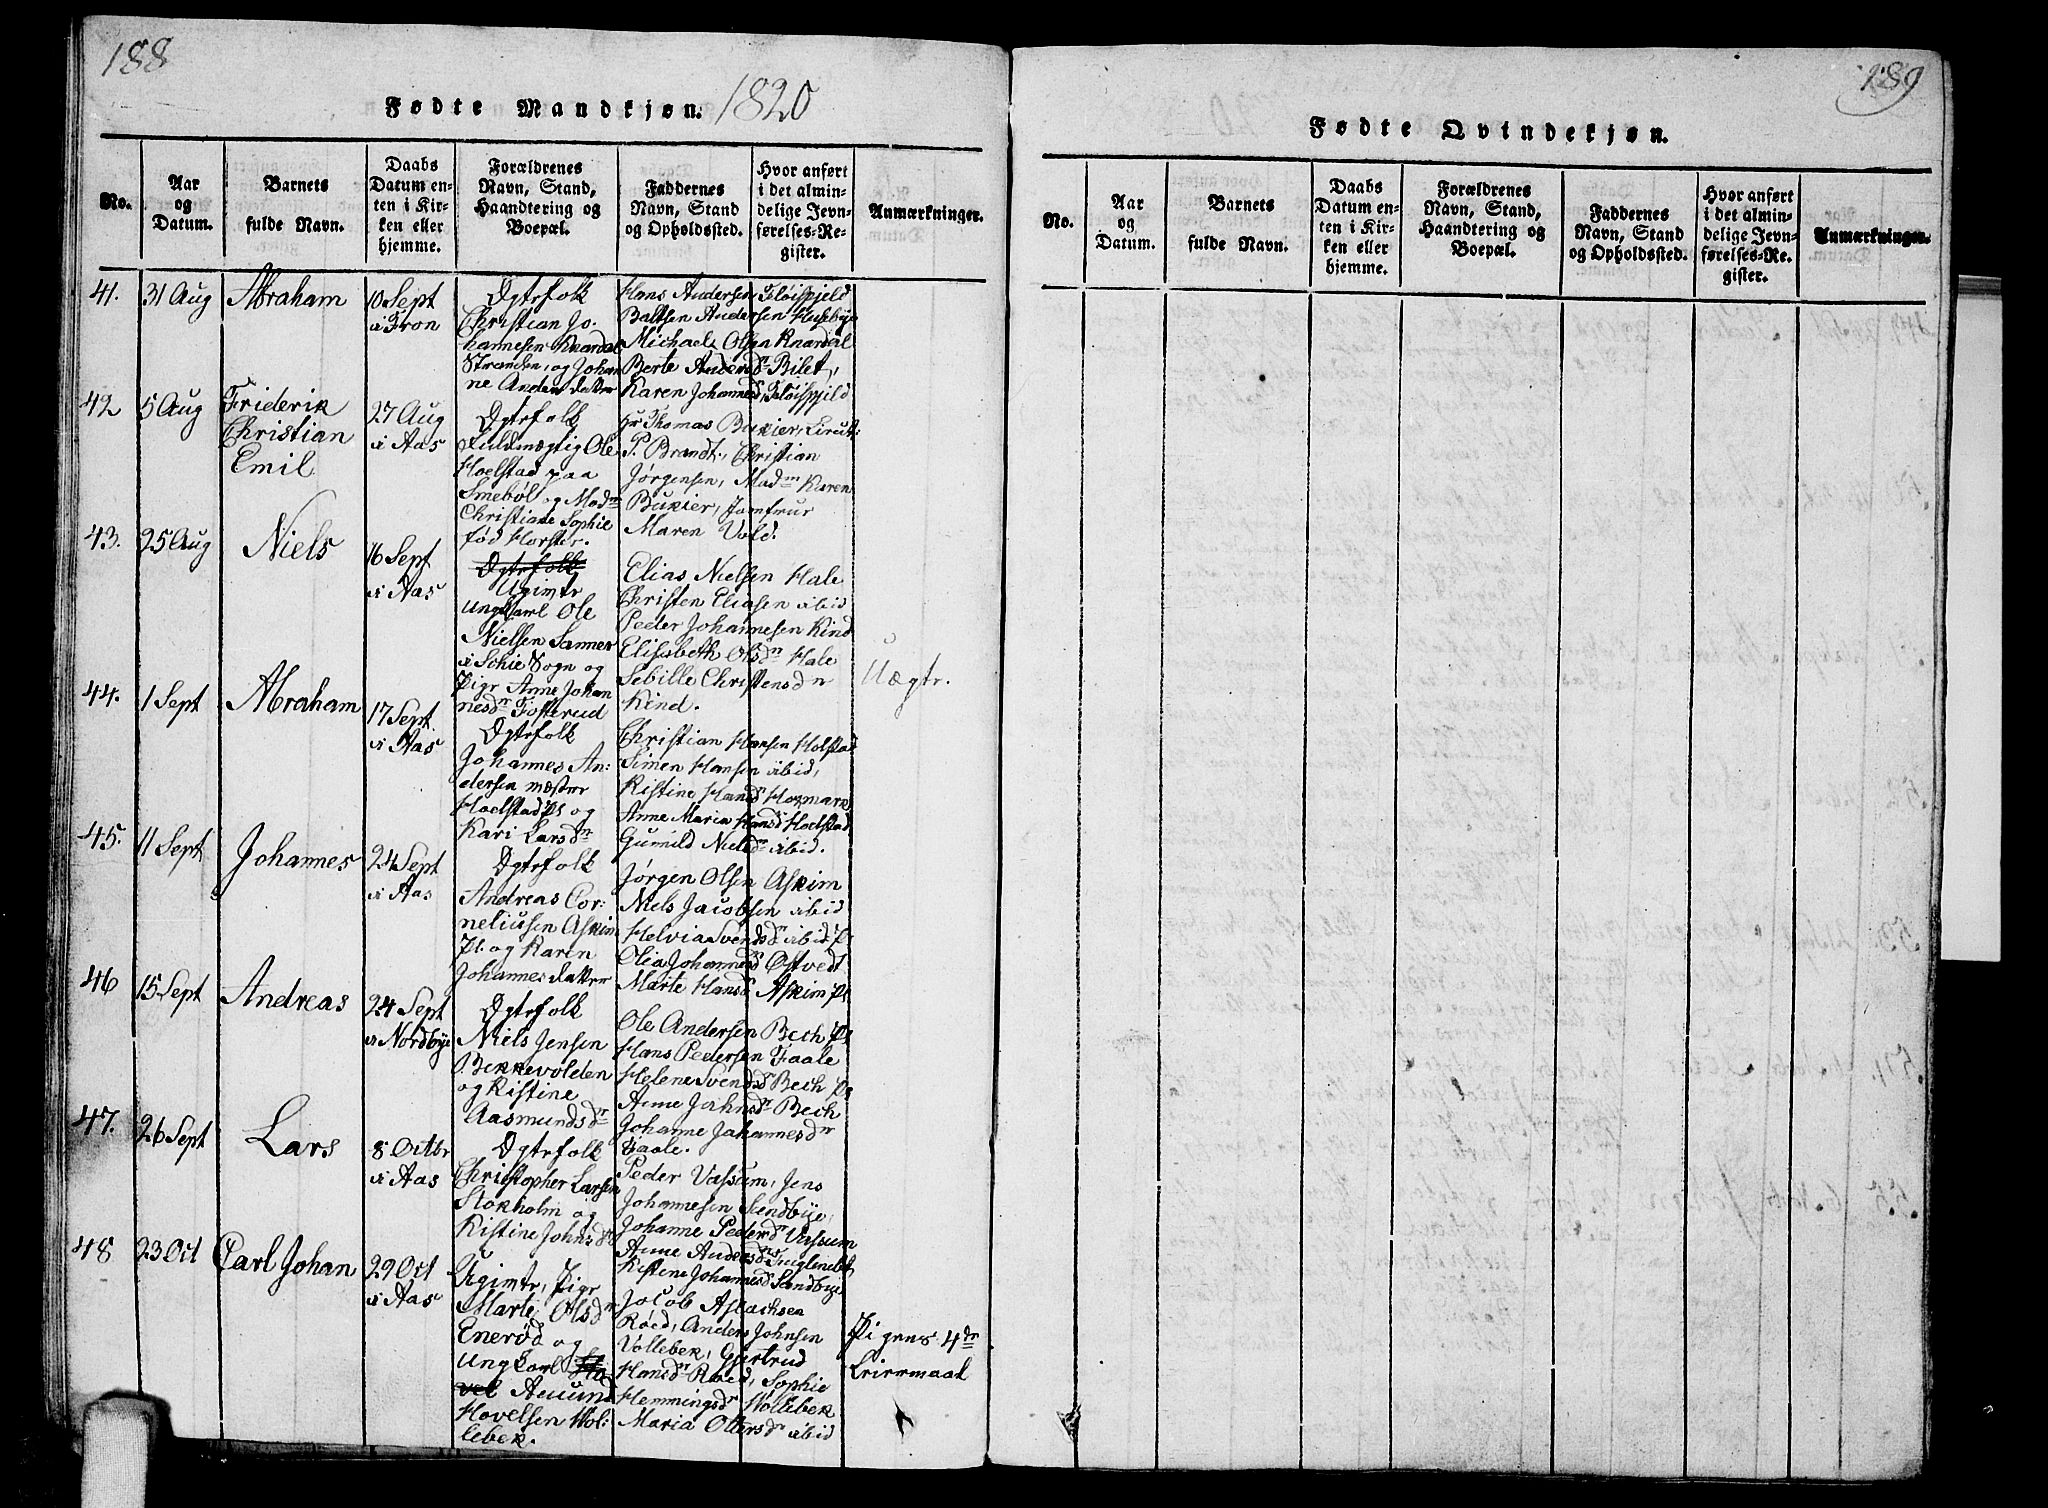 188
Fødte Mandkjøn. 1820
No.
Aar
og
Datum.
Barnets
fulde Navn.
Daabs
Datum en-
ten i Kir-
ken eller
hjemme.
Forældrenes
Navn, Stand,
Haandtering og
Boepæl.
Faddernes
Navn, Stand
og Opholdssted.
Hvor anført
i det almin-
delige Jevn-
førelses-Re-
gister.
Anmærkninger.
41.
31 Aug
Abraham
10 Sept
i Fron
Ægtefolk
Christian Jo-
hannesen Knardal
Stranden, og Johan
ne Andersdatter
Hans Andersen Fløispjeld
Baltsen Andersen Husebye
Michael Olsen Knardal
Berte Andersdr Bilet,
Karen Johannesd, Fløispjeld
42
5 Aug
Friderik
Christian
Emil
27 Aug
i Aas
Ægtefolk
Fuldmægtig Ole
Hoelstad paa
Smebøl og Madm
Christiane Sophie
fød Horster.
Hr Thomas Bukier, Lieut:
P. Brandt, Christian
Jørgensen, Madm Karen
Bukier, Jomfrur
Maren Vold.
43.
25 Aug
Niels
16 Sept
i Aas
Ægtefolk
Ugivte
Ungkarl Ole
Nielsen Sanner
i Schie Sogn og
Pige Anne Johan
nesdr Fosterud
Elias Nielsen Hale
Christen Eliasen ibid
Peder Johannesen Kind
Elisabeth Olsdr Hale
Sebille Christensdr
Kind.
Uægte.
44.
1 Sept
Abraham
17 Sept
i Aas
Ægtefolk
Johannes An:
dersen
Hoelstad Pl og
Kari Larsdr
Christian Hansen Holstad
Simen Hansen ibid,
Kistine Hansd Hogmark
Anne Maria Hansd Hoelstad
Gunnild Nielsdr ibid.
45.
11 Sept
Johannes
24 Sept
i Aas
Ægtefolk
Andreas Cor:
neliusen Askim
Pl. og Karen
Johannesdatter
Jørgen Olsen Askim
Niels Jacobsen ibid
Helvia Svendsdr ibid Pl
Olia Johannesd Østvedt
Marte Hansd Askim Pl
46
15 Sept
Andreas
24 Sept
i Nordbye
Ægtefolk
Niels Jensen
Bekkevolden
og Kistine
Aasmundsdr
Ole Andersen Bech Pl
Hans Pedersen Faale
Helene Svendsdr Bech Pl
Anne Jahnsdr Bech
Johanne Johannesdr
Faale.
47.
26 Sept
Lars
8 Octbr
i Aas
Ægtefolk
Christopher Larsen
Stokholm og
Kistine Johnsdr
Peder Vassum, Jens
Johannesen Sundbye,
Johanne Pedersdr Vassum
Anne Andersdr
Kistene Johannesd Sundbye
48
23 Oct
Carl Johan
29 Oct
i Aas
Ugivte, Pige
Marte Olsdr
Enerød og
Ungkarl
Amund
Hovelsen Vol:
lebek.
Jocob Aslachsen
Røed, Anders Johnsen
Vollebek, Gjertrud
Hansdr Røed, Sophie
Hemmingsdr Vollebek
Maria Ottersdr ibid
Pigens 4de
Leiermaal
189
Fødte Qvindekjøn.
No.
Aar
og
Datum.
Barnets
fulde Navn.
Daabs
Datum en-
ten i Kir-
ken eller
hjemme.
Forældrenes
Navn, Stand,
Haandtering og
Boepæl.
Faddernes
Navn, Stand
og Opholdssted.
Hvor anført
i det almin-
delige Jevn-
førelses-Re-
gister.
Anmærkninger.